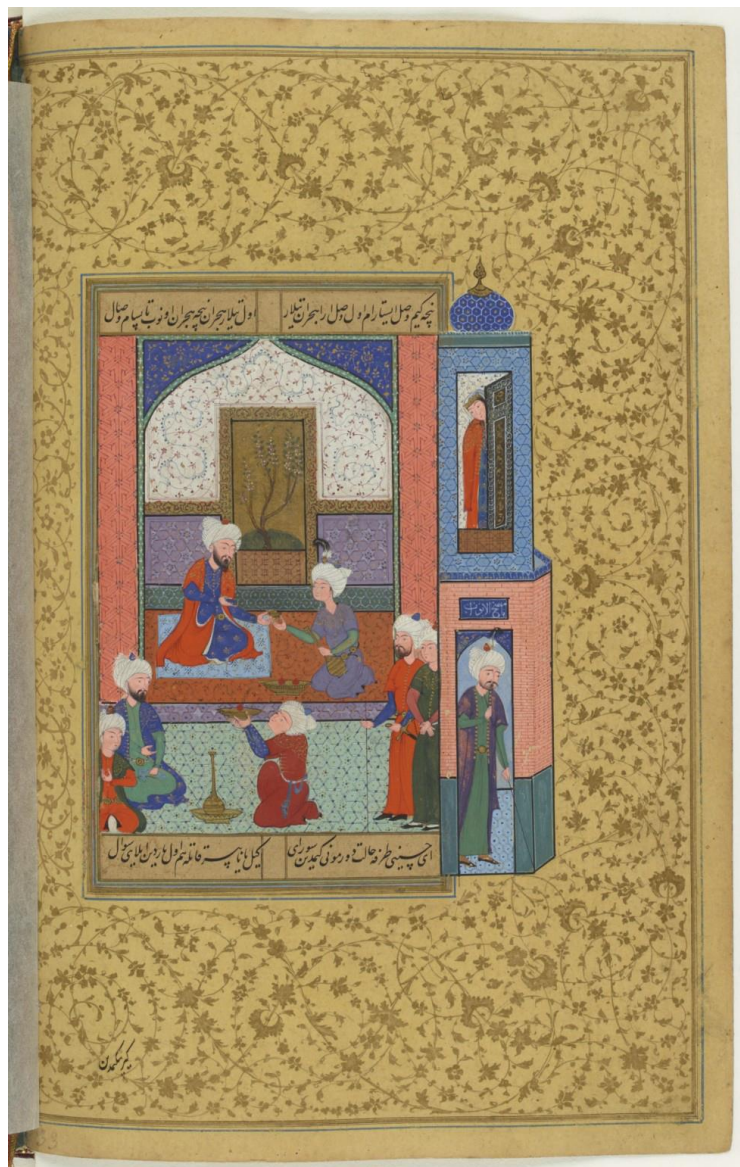 نیچه کیم وصل ایستارام اول وصل ارا هجران تیلار اول تیلار هجران نیچه هجران تاپسام وصال
یا مفتح الابواب
ای حسینی طرفه حالت دور مونی کیمدین سورای کیل یانا قاتله هم اول یاردین ایلای سوال